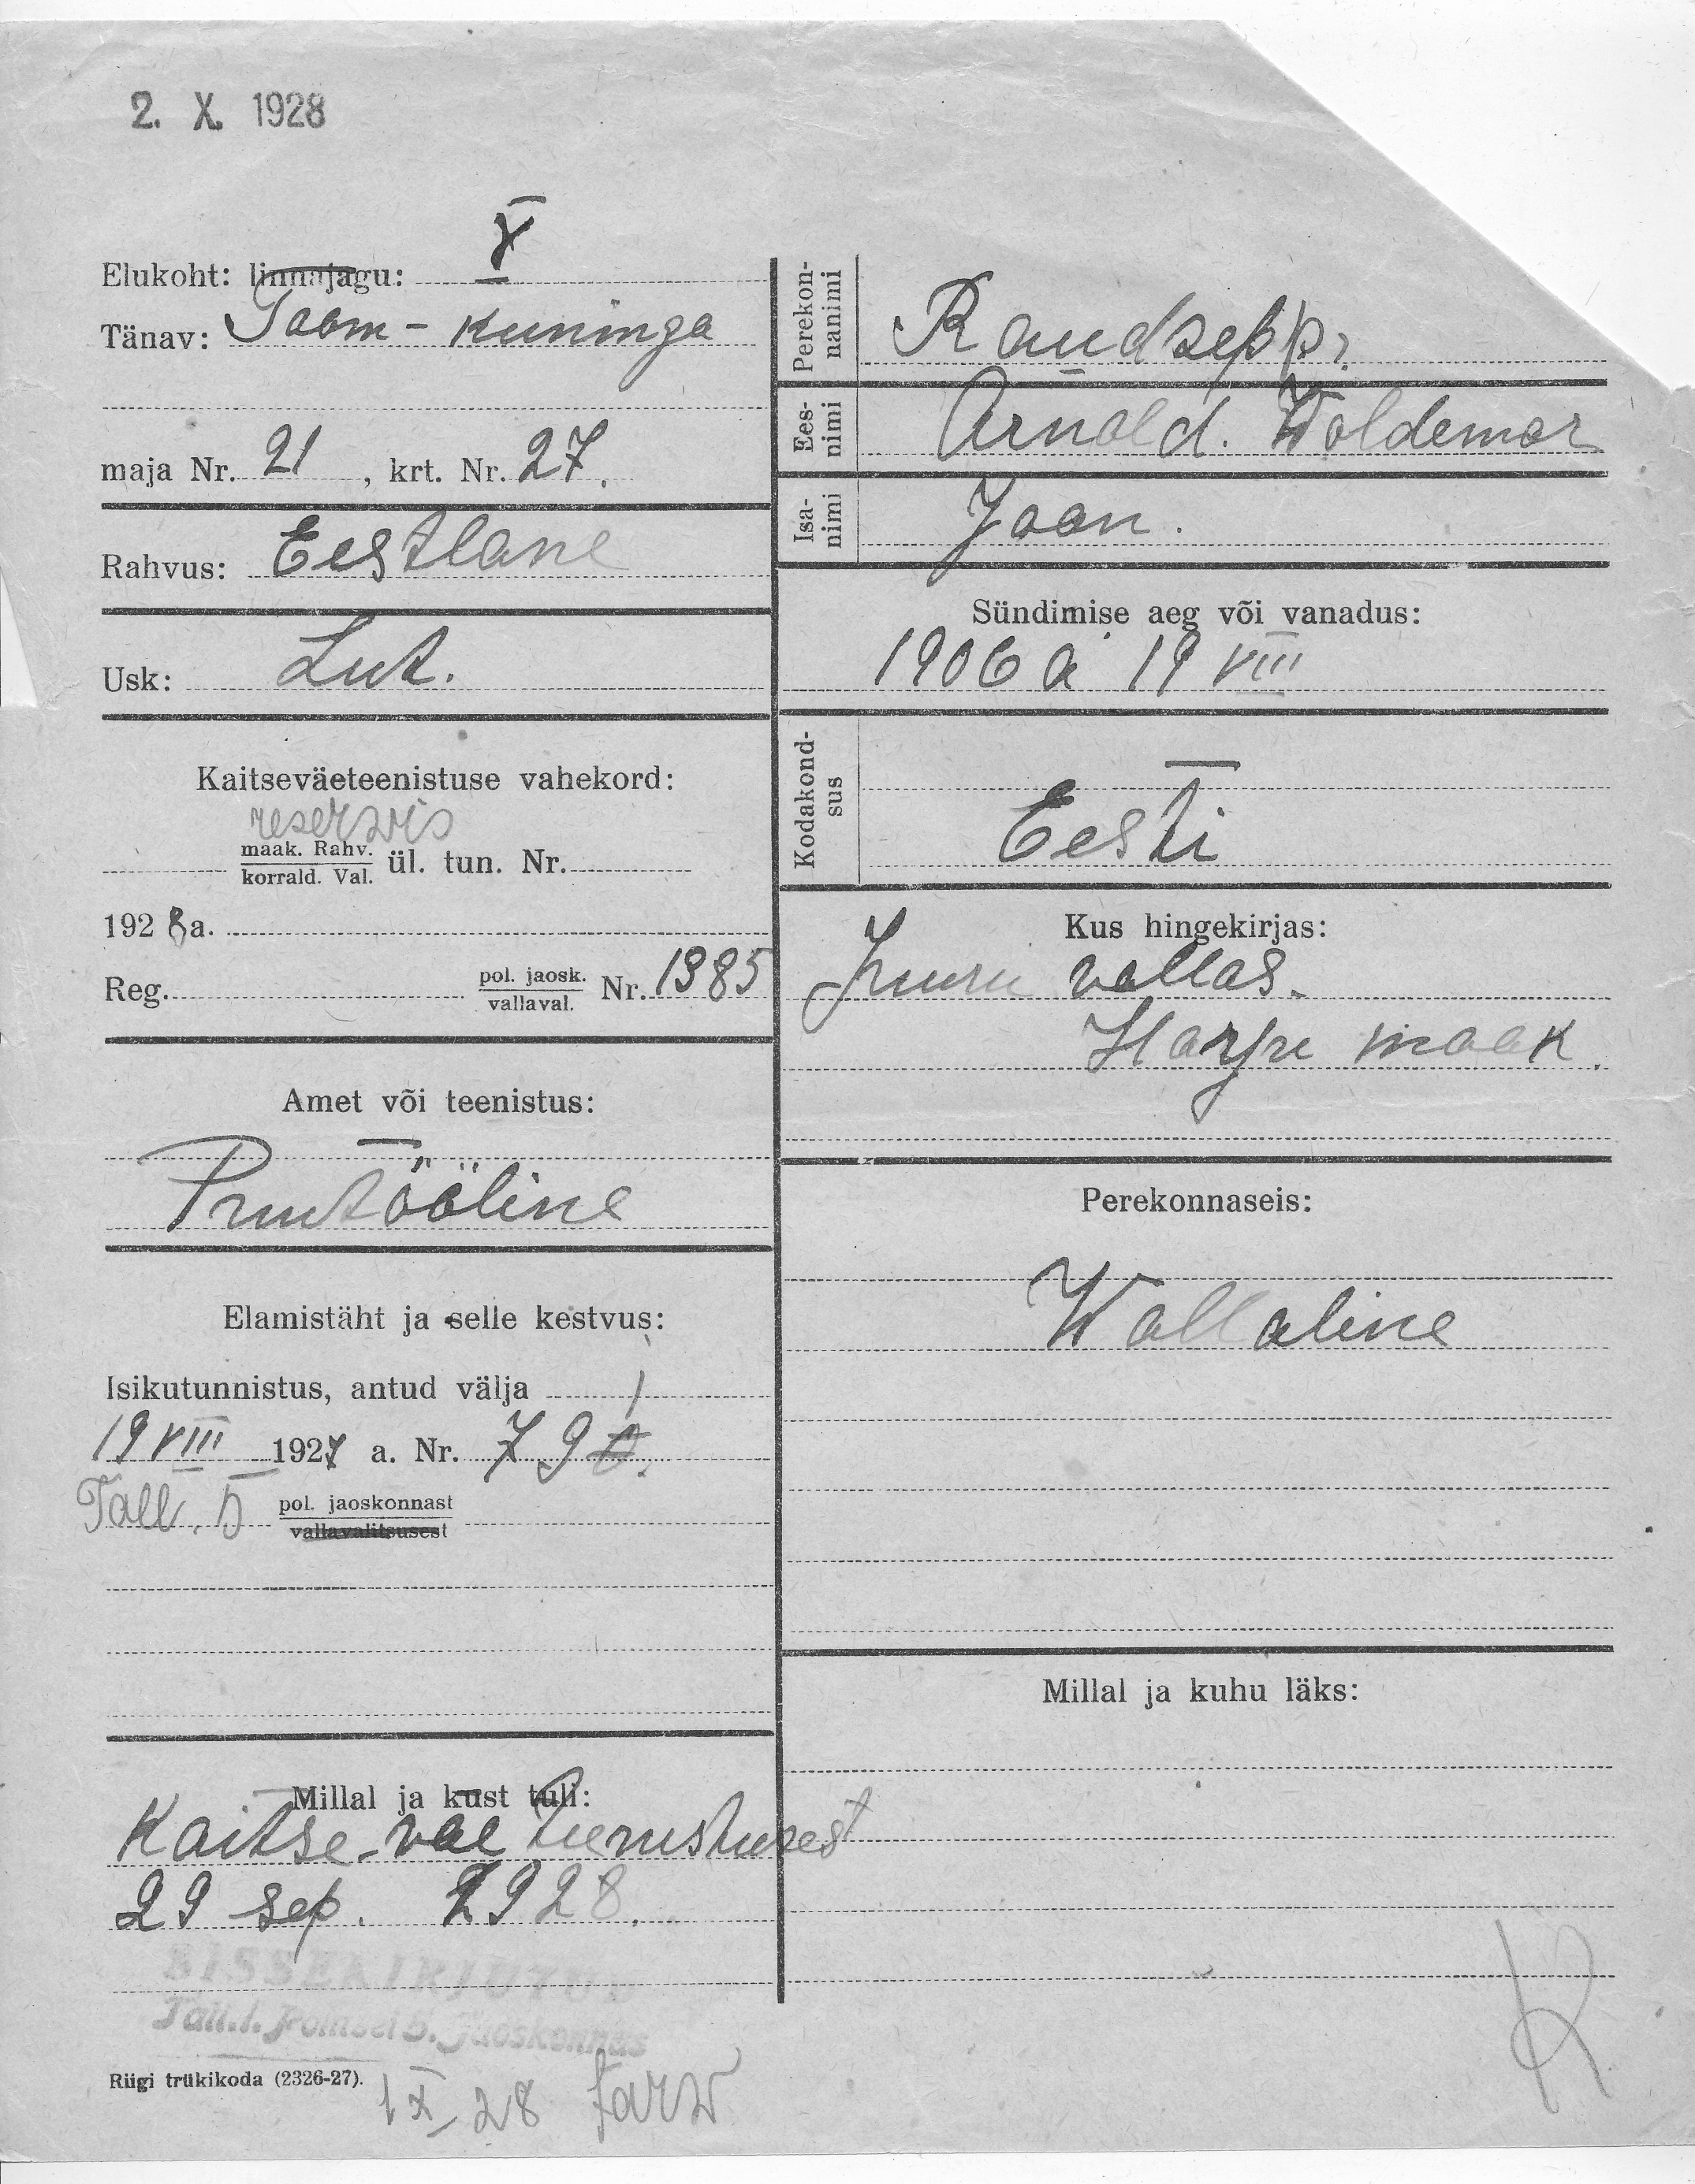 2. X. 1928
Elukoht: linnajagu: V
Tänav: Toom-kuninga
maja Nr. 21, krt. Nr. 27.
Rahvus: Eestlane
Usk: Lut.
Kaitseväeteenistuse vahekord:
reservis
maak. Rahv.
korrald. Val. ül. tun. Nr.
1928 a.
Reg. pol. jaosk.
vallaval. Nr. 1985
Amet või teenistus:
Puutööline
Elamistäht ja selle kestvus:
Isikutunnistus, antud välja
19 VIII 1927 a. Nr. 79
Tall. 5 pol. jaoskonnast
vallavalitsusest
Millal ja kust tuli:
Kaitse-väe teenistusest
29 sep. 1928.
SISSEKIRJUTUD
Tall.l. Politsei 5. Jaoskonnas
Riigi trükikoda (2326-27).
1 X 28
Perekon-
nanimi
Raudsepp,
Ees-
nimi
Arnold. Woldemar
Isa-
nimi
Jaan.
Sündimise aeg või vanadus:
1906 a 19 VIII
Kodakond-
sus
Eesti
Kus hingekirjas:
Juuru vallas.
Harju maak.
Perekonnaseis:
Wallaline
Millal ja kuhu läks:
K